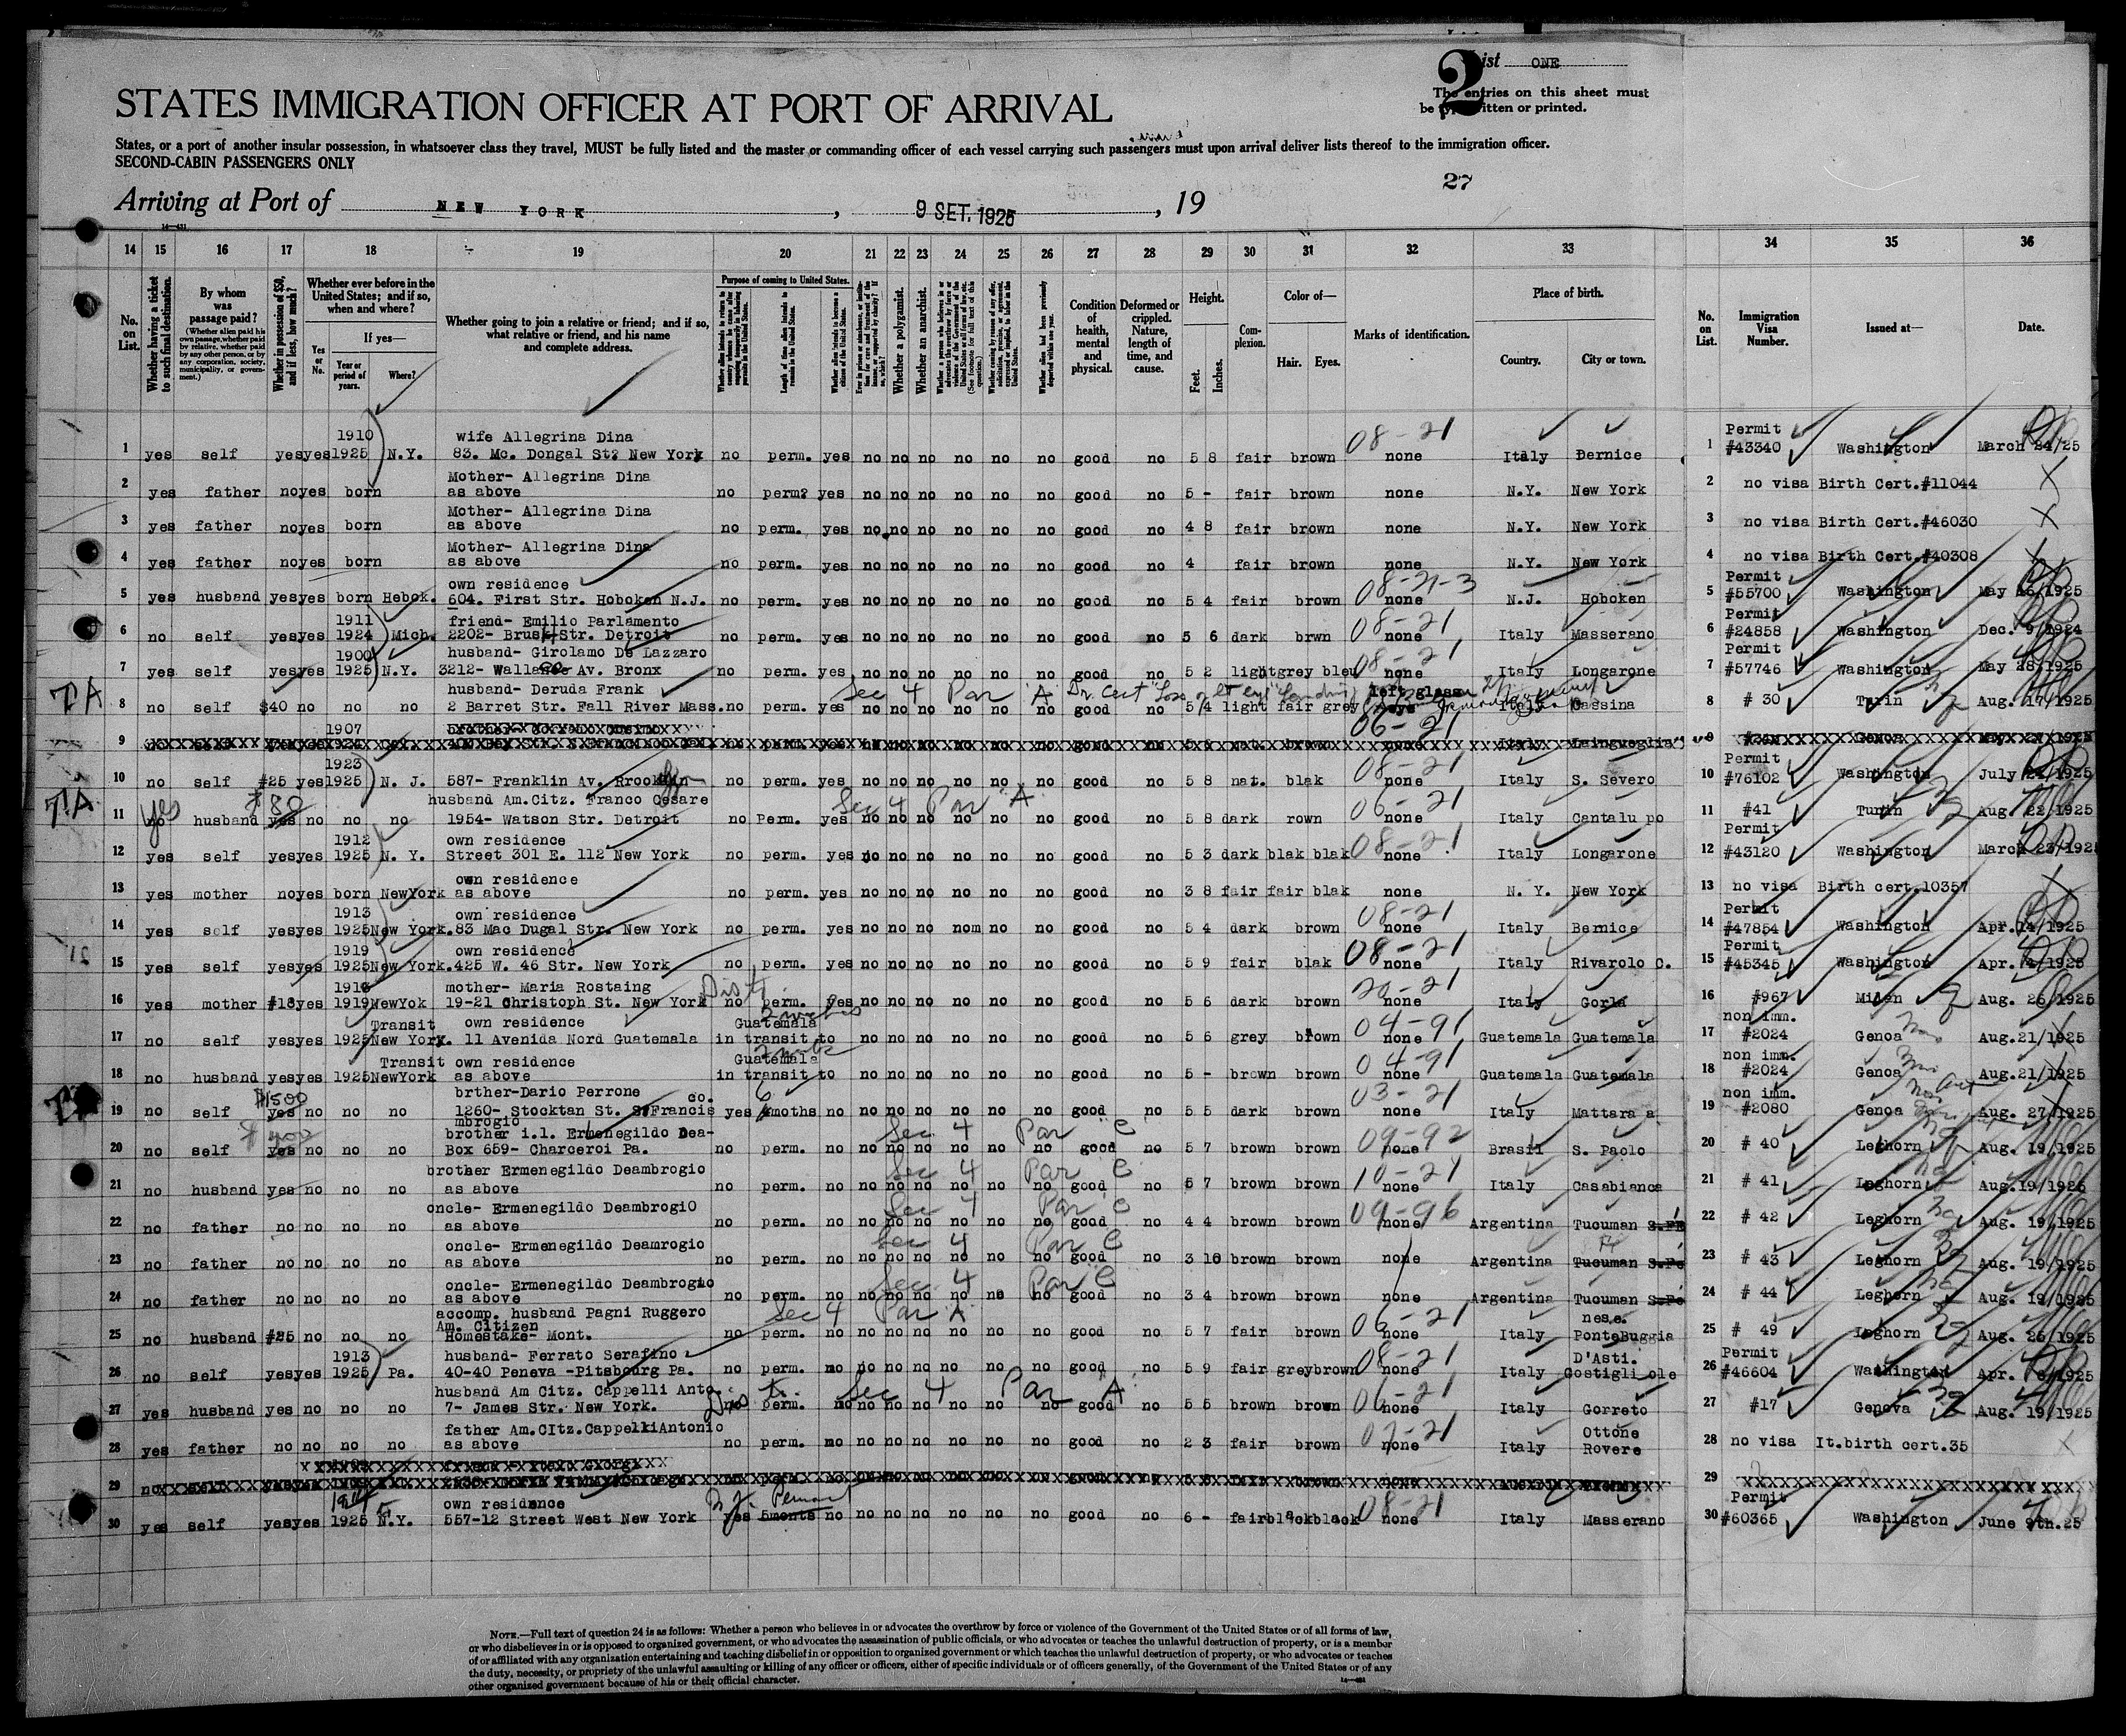 List ONE
2
The entries on this sheet must
be typewritten or printed.
STATES IMMIGRATION OFFICER AT PORT OF ARRIVAL
States, or a port of another insular possession, in whatsoever class they travel, MUST be fully listed and the master or commanding officer of each vessel carrying such passengers must upon arrival deliver lists thereof to the immigration officer.
SECOND-CABIN PASSENGERS ONLY
27
Arriving at Port of NEW YORK, 9 SET. 1925, 19
14 15 16 17 18 19 20 21 22 23 24 25 26 27 28 29 30 31 32 33 34 35 36
No. on List.
Whether having a ticket to such final destination.
By whom was passage paid?
(Whether alien paid his own passage, whether paid by relative, whether paid by any other person, or by any corporation, society, municipality, or government.)
Whether in possession of $50, and if less, how much?
Whether ever before in the United States; and if so, when and where?
Yes or No.
If yes—
Year or period of years.
Where?
Whether going to join a relative or friend; and if so, what relative or friend, and his name and complete address.
Purpose of coming to United States.
Length of time alien intends to remain in the United States.
Whether alien intends to become a citizen of the United States.
Whether a polygamist.
Whether an anarchist.
Condition of health, mental and physical.
Deformed or crippled. Nature, length of time, and cause.
Height.
Feet. Inches.
Complexion.
Color of—
Hair. Eyes.
Marks of identification.
Place of birth.
Country. City or town.
No. on List.
Immigration Visa Number.
Issued at—
Date.
1910 wife Allegrina Dina 08-21 Permit
1 yes self yes yes 1925 N.Y. 83. Mc. Dongal St? New York no perm. yes no no no no no no good no 5 8 fair brown none Italy Bernice 1 #43340 Washington March 24/25
Mother- Allegrina Dina
2 yes father no yes born as above no perm? yes no no no no no no good no 5 - fair brown none N.Y. New York 2 no visa Birth Cert.#11044
Mother- Allegrina Dina
3 yes father no yes born as above no perm. yes no no no no no no good no 4 8 fair brown none N.Y. New York 3 no visa Birth Cert.#46030
Mother- Allegrina Dina
4 yes father no yes born as above no perm. yes no no no no no no good no 4 fair brown none N.Y. New York 4 no visa Birth Cert.#40308
own residence 08-21-3 Permit
5 yes husband yes yes born Hebok. 604. First Str. Hoboken N.J. no perm. yes no no no no no no good no 5 4 fair brown none N.J. Hoboken 5 #55700 Washington May 1925
1911 friend- Emilio Parlamento 08-21 Permit
6 no self yes yes 1924 Mich. 2202- Brush Str. Detroit no perm. yes no no no no no no good no 5 6 dark brwn none Italy Masserano 6 #24858 Washington Dec. 9/1924
1900 husband- Girolamo De Lazzaro 08-21 Permit
7 yes self yes yes 1925 N.Y. 3212- Wallace Av. Bronx no perm. yes no no no no no no good no 5 2 light grey bleu none Italy Longarone 7 #57746 Washington May 28/1925
TA husband- Deruda Frank Sec 4 Par A left glass
8 no self $40 no no no 2 Barret Str. Fall River Mass. no perm. yes no no no no no no good no 5 4 light fair grey eye Italy Cassina 8 # 30 Turin Aug. 17/1925
1907 06-21
9
1923 08-21 Permit
10 no self #25 yes 1925 N. J. 587- Franklin Av. no perm. yes no no no no no no good no 5 8 nat. blak none Italy S. Severo 10 #76102 Washington July 1925
TA yes $30 husband Am.Citz. Franco Cesare Sec 4 Par A 06-21
11 no husband yes no no no 1954- Watson Str. Detroit no Perm. yes no no no no no no good no 5 8 dark rown none Italy Cantalu po 11 #41 Turin Aug. 22/1925
1912 own residence 08-21 Permit
12 yes self yes yes 1925 N. Y. Street 301 E. 112 New York no perm. yes no no no no no no good no 5 3 dark blak blak none Italy Longarone 12 #43120 Washington March 23/1925
own residence
13 yes mother no yes born NewYork as above no perm. yes no no no no no no good no 3 8 fair fair blak none N. Y. New York 13 no visa Birth cert.10357
1913 own residence 08-21 Permit
14 yes self yes yes 1925 New York. 83 Mac Dugal Str. New York no perm. yes no no no nom no no good no 5 4 dark brown none Italy Bernice 14 #47854 Washington Apr.14/1925
1919 own residence 08-21 Permit
15 yes self yes yes 1925 New York. 425 W. 46 Str. New York no perm. yes no no no no no no good no 5 9 fair blak none Italy Rivarolo C. 15 #45345 Washington Apr. 4/1925
1916 mother- Maria Rostaing 20-21
16 yes mother #18 yes 1919 NewYok 19-21 Christoph St. New York no perm. yes no no no no no no good no 5 6 dark brown none Italy Gorla 16 #967 Milen Aug. 26/1925
Transit own residence Guatemala 04-91 non imm.
17 no self yes yes 1925 New York. 11 Avenida Nord Guatemala in transit to no no no no no no good no 5 6 grey brown none Guatemala Guatemala 17 #2024 Genoa Aug.21/1925
Transit own residence Guatemala 04-91 non imm.
18 no husband yes yes 1925 NewYork as above in transit to no no no no no no good no 5 - brown brown none Guatemala Guatemala 18 #2024 Genoa Aug.21/1925
$1500 brther-Dario Perrone 6 03-21 non imm.
19 no self yes no no no 1260- Stocktan St. S.Francis co. yes moths no no no no no no no good no 5 5 dark brown none Italy Mattara a 19 #2080 Genoa Aug. 27/1925
mbrogio
$400 brother i.l. Ermenegildo Dea- Sec 4 Par C 09-92
20 no self yes no no no Box 659- Charceroi Pa. no perm. no no no no no no no good no 5 7 brown brown none Brasil S. Paolo 20 # 40 Leghorn Aug. 19/1925
brother Ermenegildo Deambrogio Sec 4 Par C 10-21
21 no husband yes no no no as above no perm. no no no no no no no good no 5 7 brown brown none Italy Casabianca 21 # 41 Leghorn Aug.19/1925
oncle- Ermenegildo DeambrogiO Sec 4 Par C 09-96
22 no father no no no no as above no perm. no no no no no no no good no 4 4 brown brown none Argentina Tucuman 22 # 42 Leghorn Aug. 19/1925
oncle- Ermenegildo Deamrogio Sec 4 Par C
23 no father no no no no as above no perm. no no no no no no no good no 3 10 brown brown none Argentina Tucuman S.Fé 23 # 43 Leghorn Aug. 19/1925
oncle- Ermenegildo Deambrogio Sec 4 Par C
24 no father no no no no as above no perm. no no no no no no no good no 3 4 brown brown none Argentina Tucuman S.Fé 24 # 44 Leghorn Aug. 19/1925
accomp. husband Pagni Ruggero Sec 4 Par A 06-21
Am. Citizen nese.
25 no husband #25 no no no Homestake- Mont. no perm. no no no no no no no good no 5 7 fair brown none Italy PonteBuggia 25 # 49 Leghorn Aug. 26/1925
1913 husband- Ferrato Serafino 08-21 D'Asti. Permit
26 no self yes yes 1925 Pa. 40-40 Peneva -Pitsbourg Pa. no perm. no no no no no no no good no 5 9 fair grey brown none Italy Costigli ole 26 #46604 Washington Apr. 1925
husband Am Citz. Cappelli Anto. Sec 4 Par A 06-21
27 yes husband yes no no no 7- James Str. New York. no perm. no no no no no no no good no 5 5 brown brown none Italy Gorreto 27 #17 Genova Aug. 19/1925
father Am.CItz.CappelliAntonio 07-21 Ottone
28 yes father no no no no as above no perm. no no no no no no no good no 2 3 fair brown none Italy Rovere 28 no visa It.birth cert.35
29
own residence Perman 08-21 Permit
30 yes self yes yes 1925 N.Y. 557-12 Street West New York yes 5monts no no no no no no no good no 6 - fair black black none Italy Masserano 30 #60365 Washington June 9th.25
NOTE.—Full text of question 24 is as follows: Whether a person who believes in or advocates the overthrow by force or violence of the Government of the United States or of all forms of law,
or who disbelieves in or is opposed to organized government, or who advocates the assassination of public officials, or who advocates or teaches the unlawful destruction of property, or is a member
of or affiliated with any organization entertaining and teaching disbelief in or opposition to organized government or which teaches the unlawful destruction of property, or who advocates or teaches
the duty, necessity, or propriety of the unlawful assaulting or killing of any officer or officers, either of specific individuals or of officers generally, of the Government of the United States or of any
other organized government because of his or their official character.